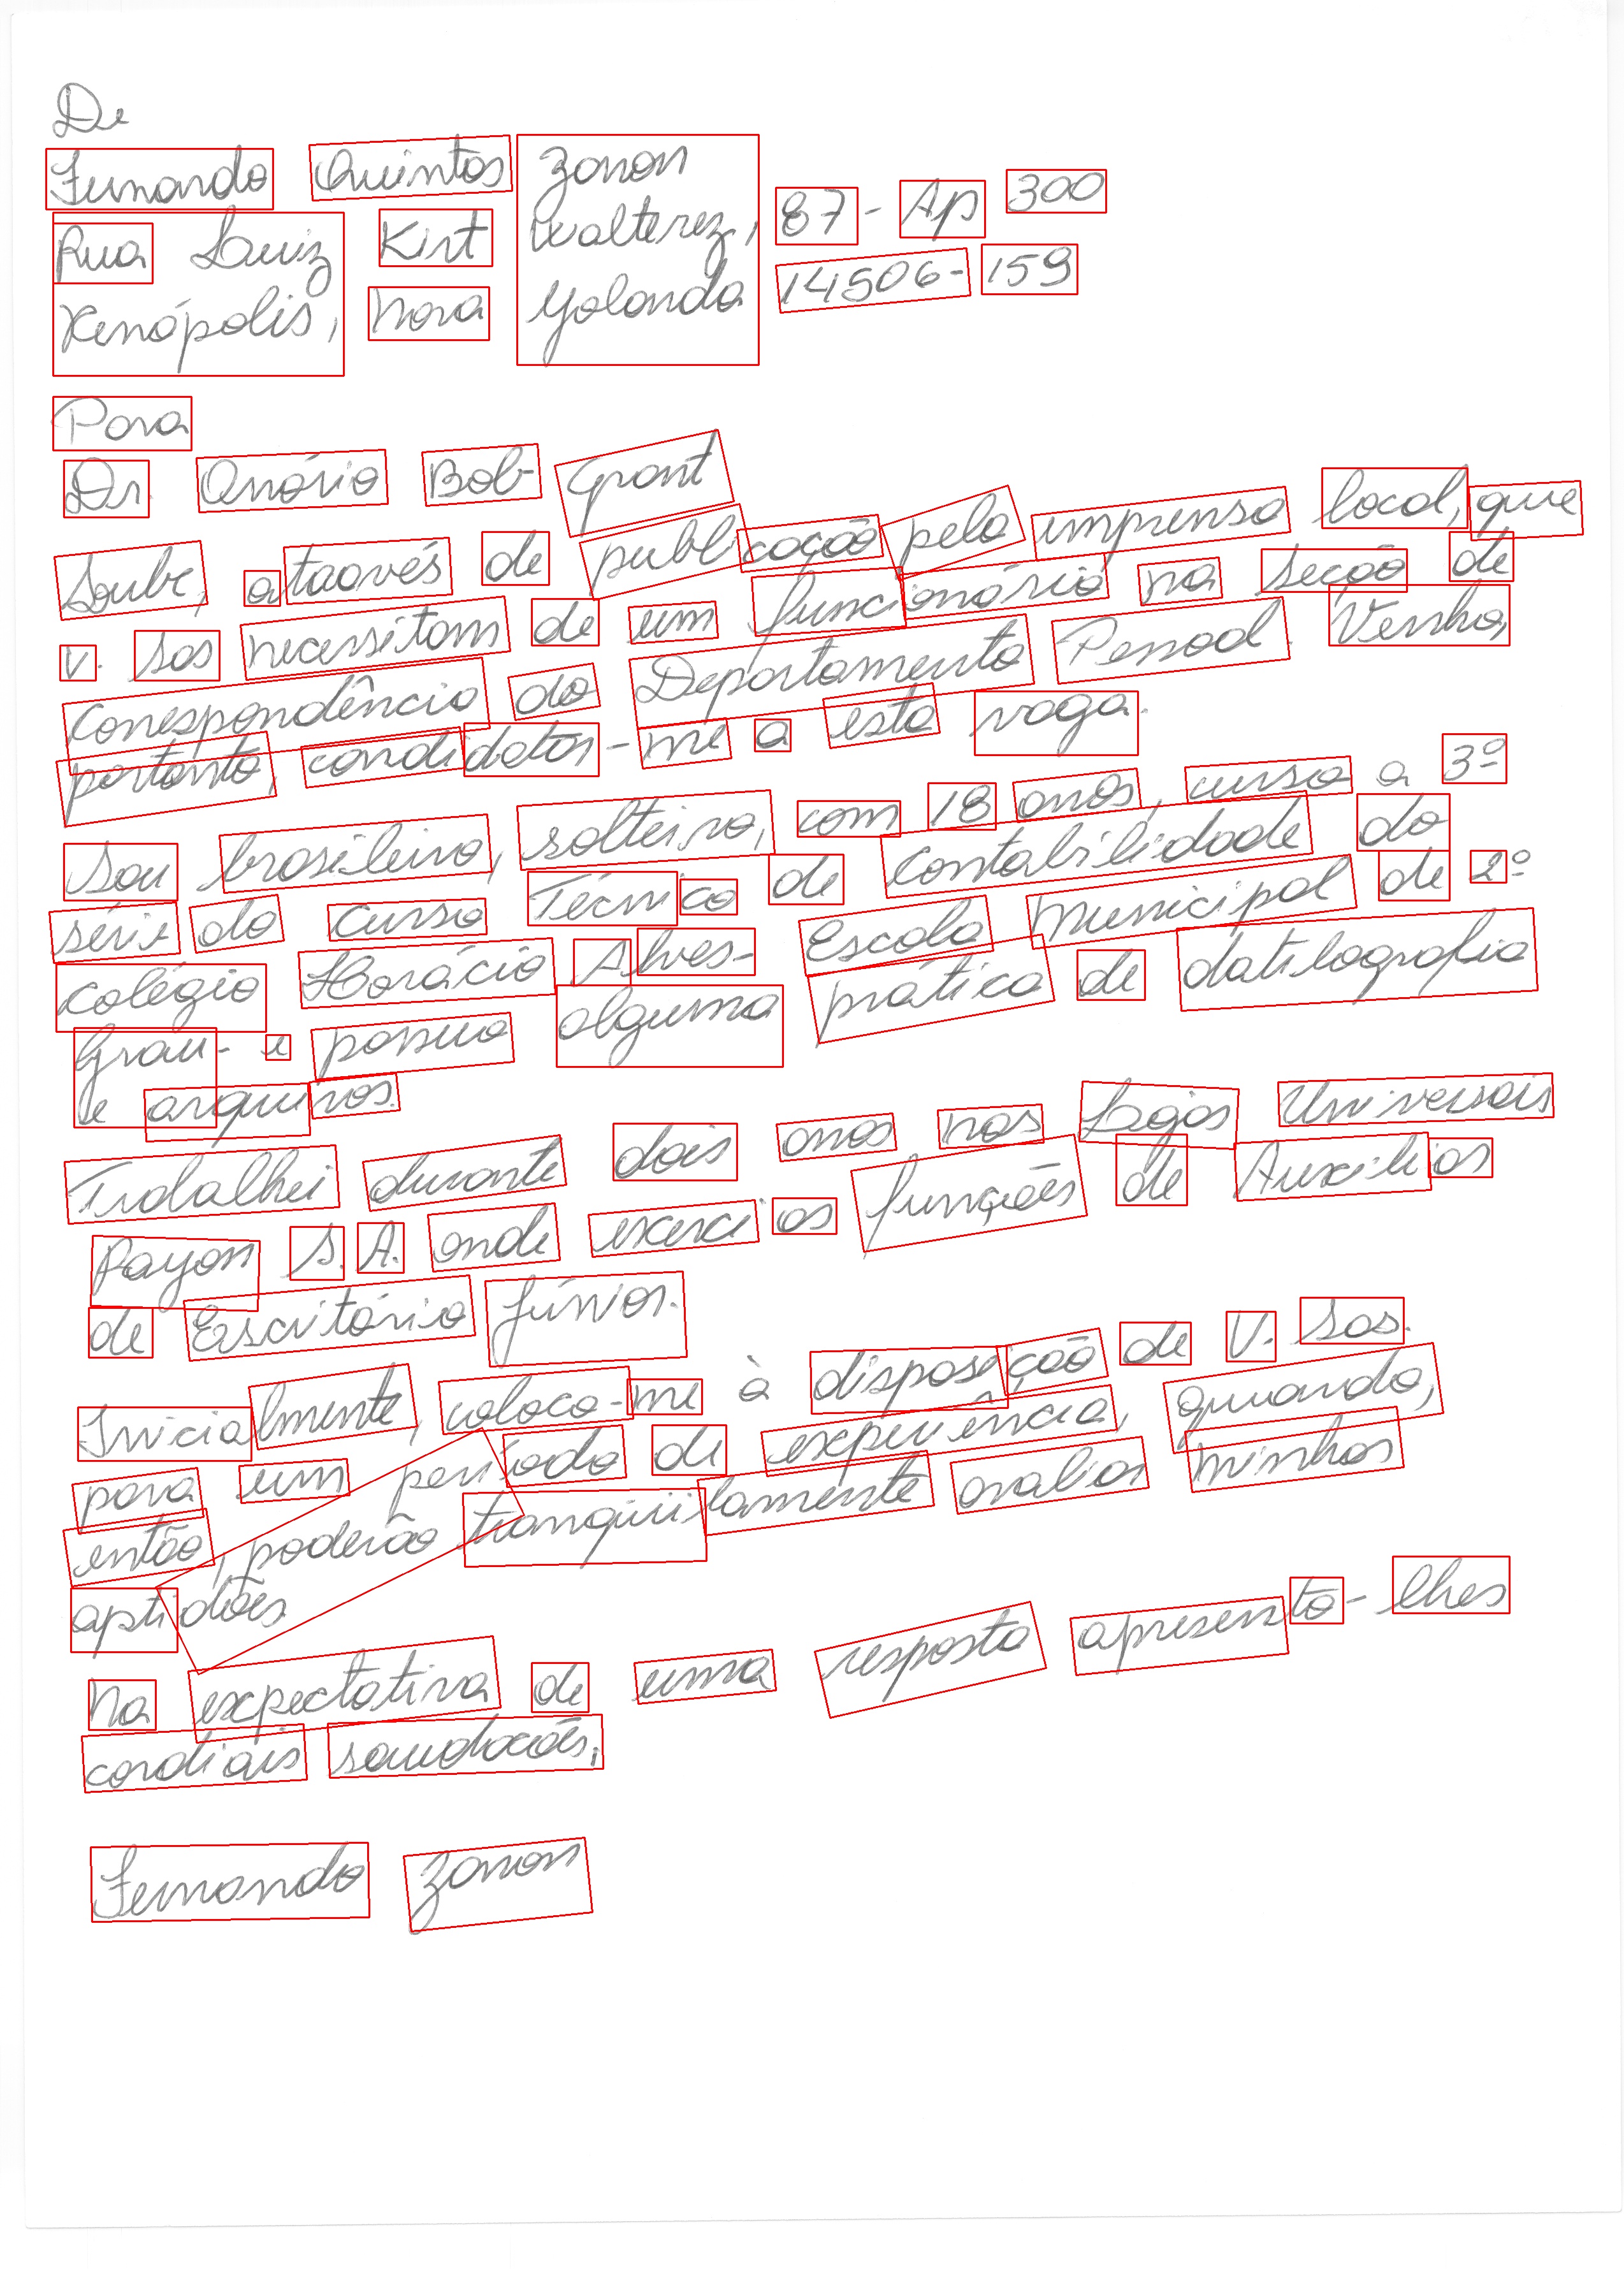 De
Fernando Quintos Zanon
Rua Luiz Kirt Walterez, 87 - Ap 300
Xenópolis, Nova Yolanda 14506-159
Para
Dr. Onório Bob Grant
Soube, ataavés de publicação pela imprensa local, que
V. Sas necessitam de um funcionário na seção de
Correspondência do Departamento Pessoal. Venho,
portanto, candidatar-me a esta vaga.
Sou brasileiro, solteiro, com 18 anos, curso a 3º
série do curso Técnico de Contabilidade do
colégio Horácio Alves - Escola Municipal de 2º
Grau - e possuo alguma prática de datilografia
e arquivos.
Trabalhei durante dois anos nas Lojas Universais
Rayon S. A. onde exerci as funções de Auxiliar
de Escritório Júnior.
Inicialmente, coloco-me à disposição de V. Sas.
para um período de experiência, quando,
então, poderão tranqüilamente avaliar minhas
aptidões
Na expectativa de uma resposta apresento-lhes
cordiais saudações,
Fernando Zanon